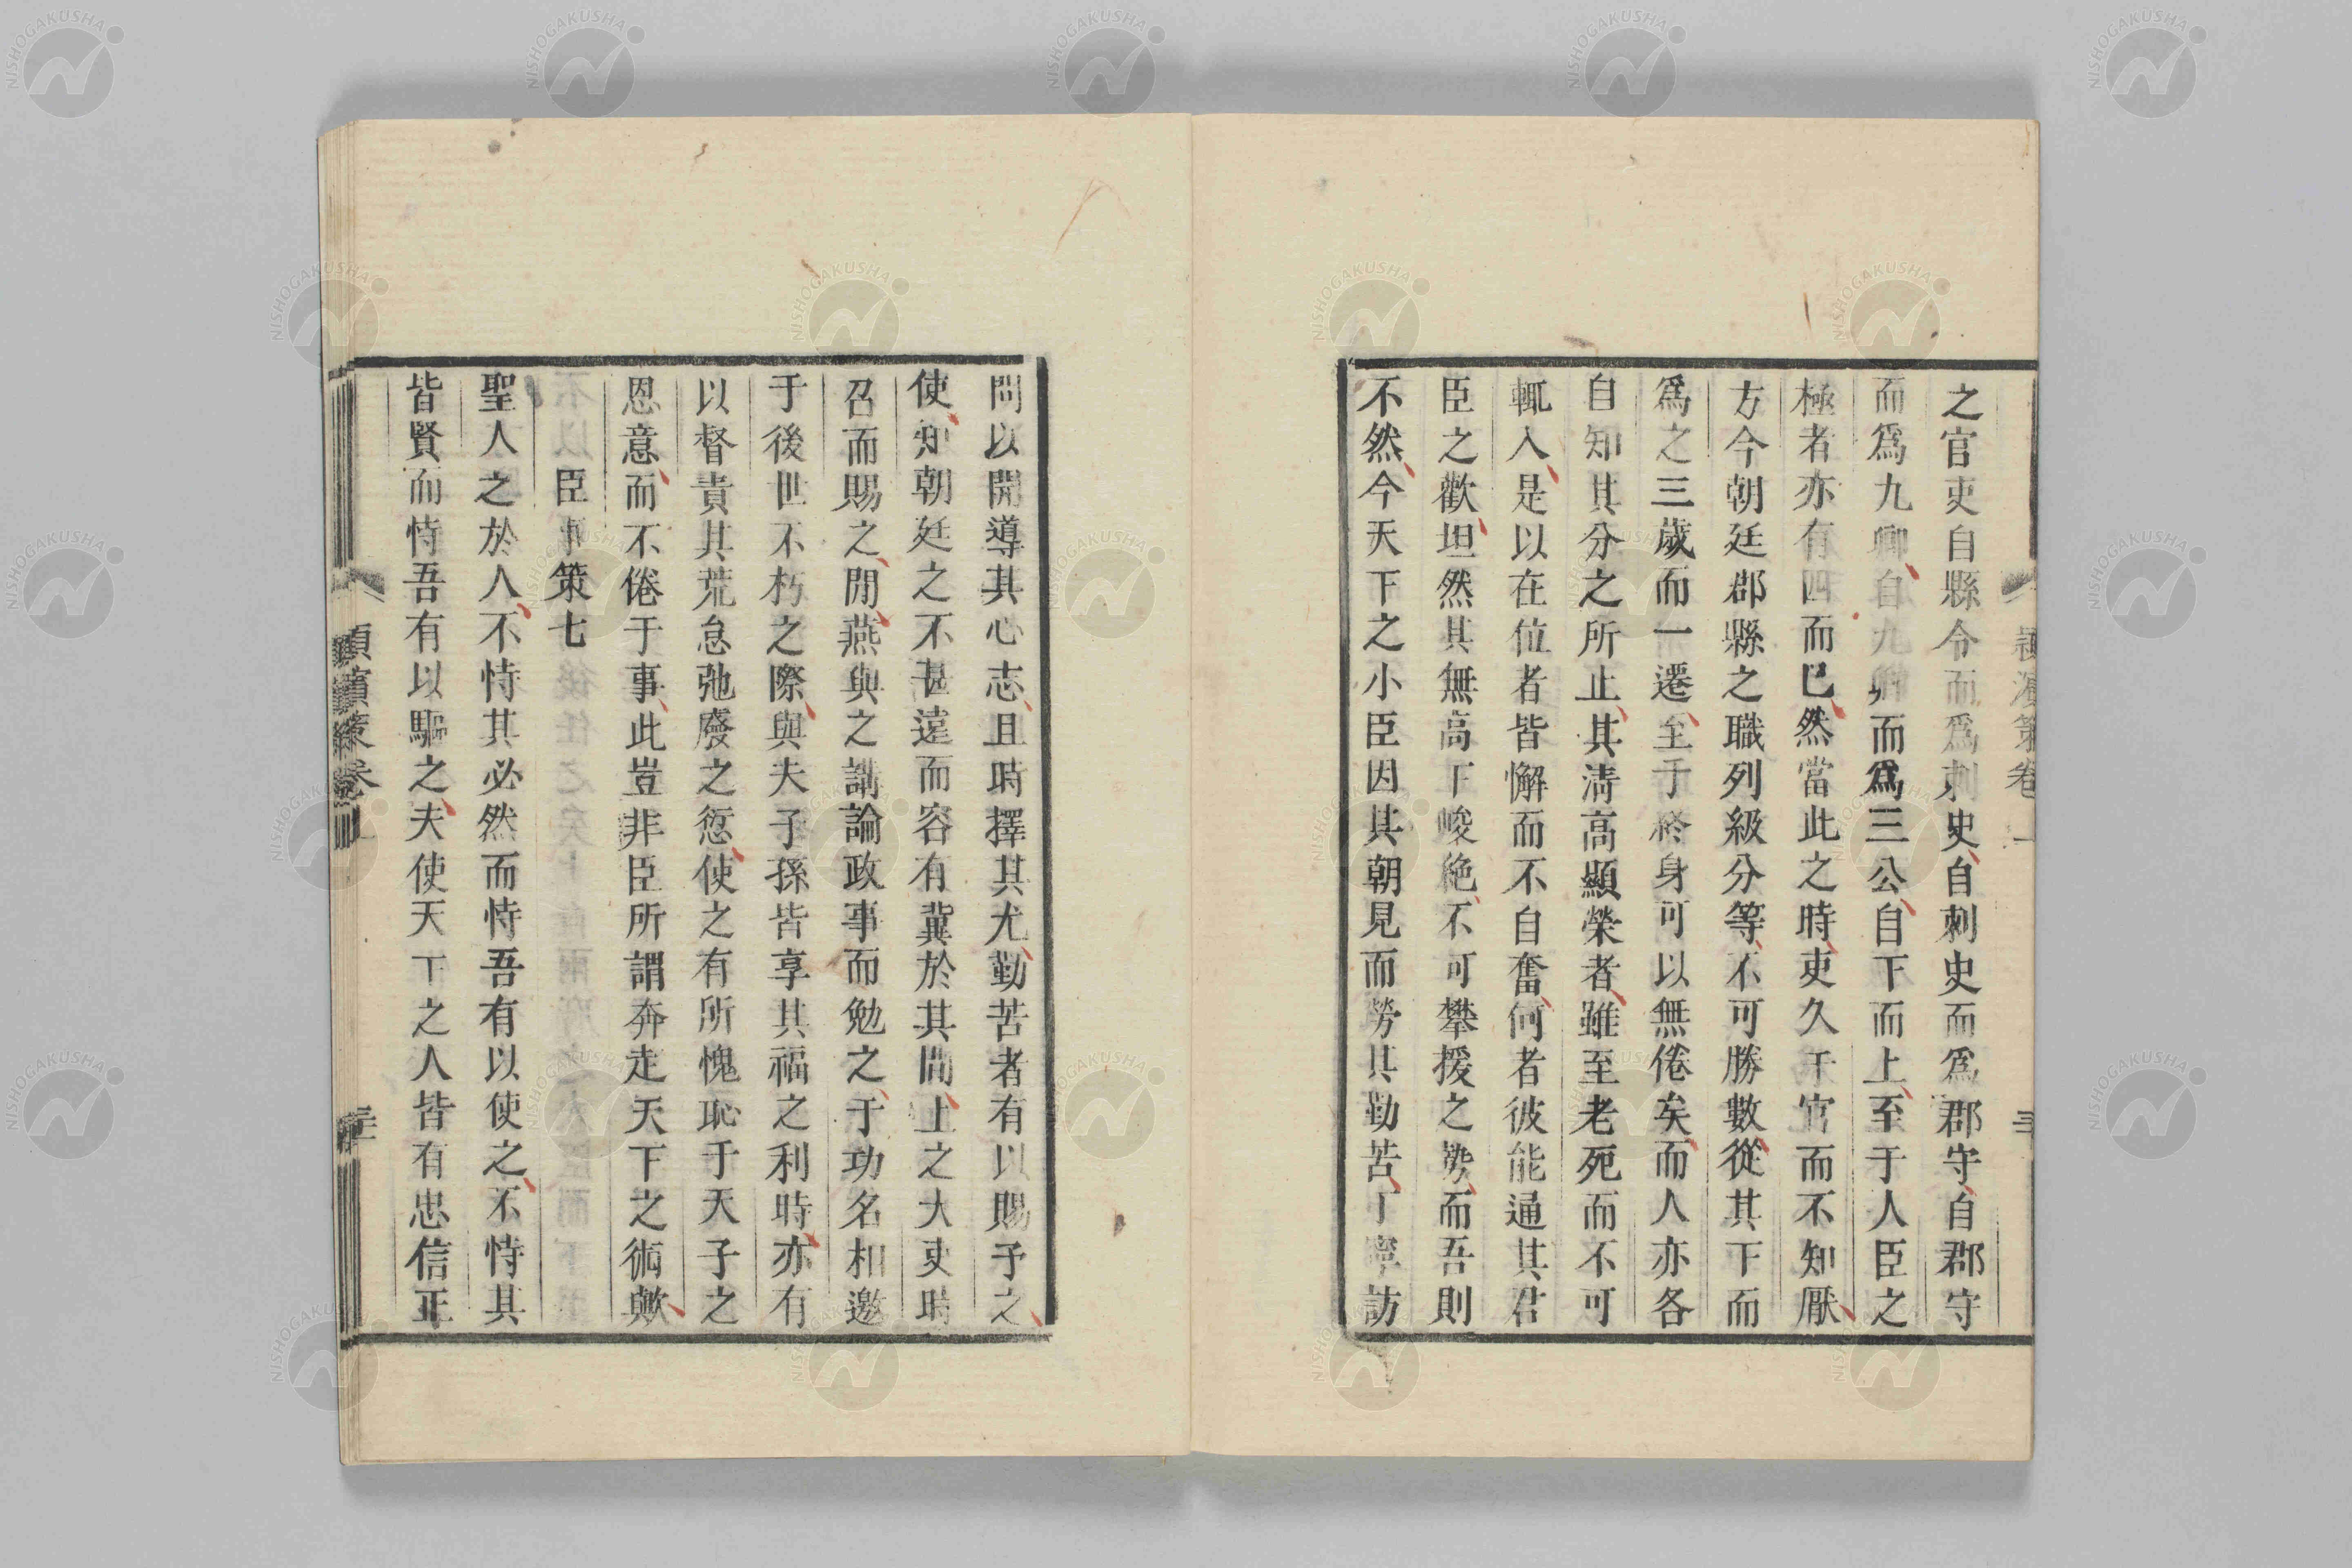 之官吏自縣令而爲刺史自刺史而爲郡守自郡守
而爲九卿自九卿而爲三公自下而上至于人臣之
極者亦有四而已然當此之時吏久于官而不知厭
方今朝廷郡縣之職列級分等不可勝數從其下而
爲之三歲而一遷至于終身可以無倦矣而人亦各
自知其分之所止其清高顯榮者雖至老死而不可
輒入是以在位者皆懈而不自奮何者彼能通其君
臣之歡坦然其無高下峻絕不可攀援之勢而吾則
不然今天下之小臣因其朝見而勞其勤苦丁寧訪
問以開導其心志且時擇其尤勤苦者有以賜予之
使知朝廷之不甚遠而容有冀於其間上之大吏時
召而賜之閒燕與之講論政事而勉之于功名相邀
于後世不朽之際與夫子孫皆享其福之利時亦有
以督責其荒怠弛廢之愆使之有所愧恥于天子之
恩意而不倦于事此豈非臣所謂奔走天下之術歟
臣事策七
聖人之於人不恃其必然而恃吾有以使之不恃其
皆賢而恃吾有以驅之夫使天下之人皆有忠信正
潁濱策卷一